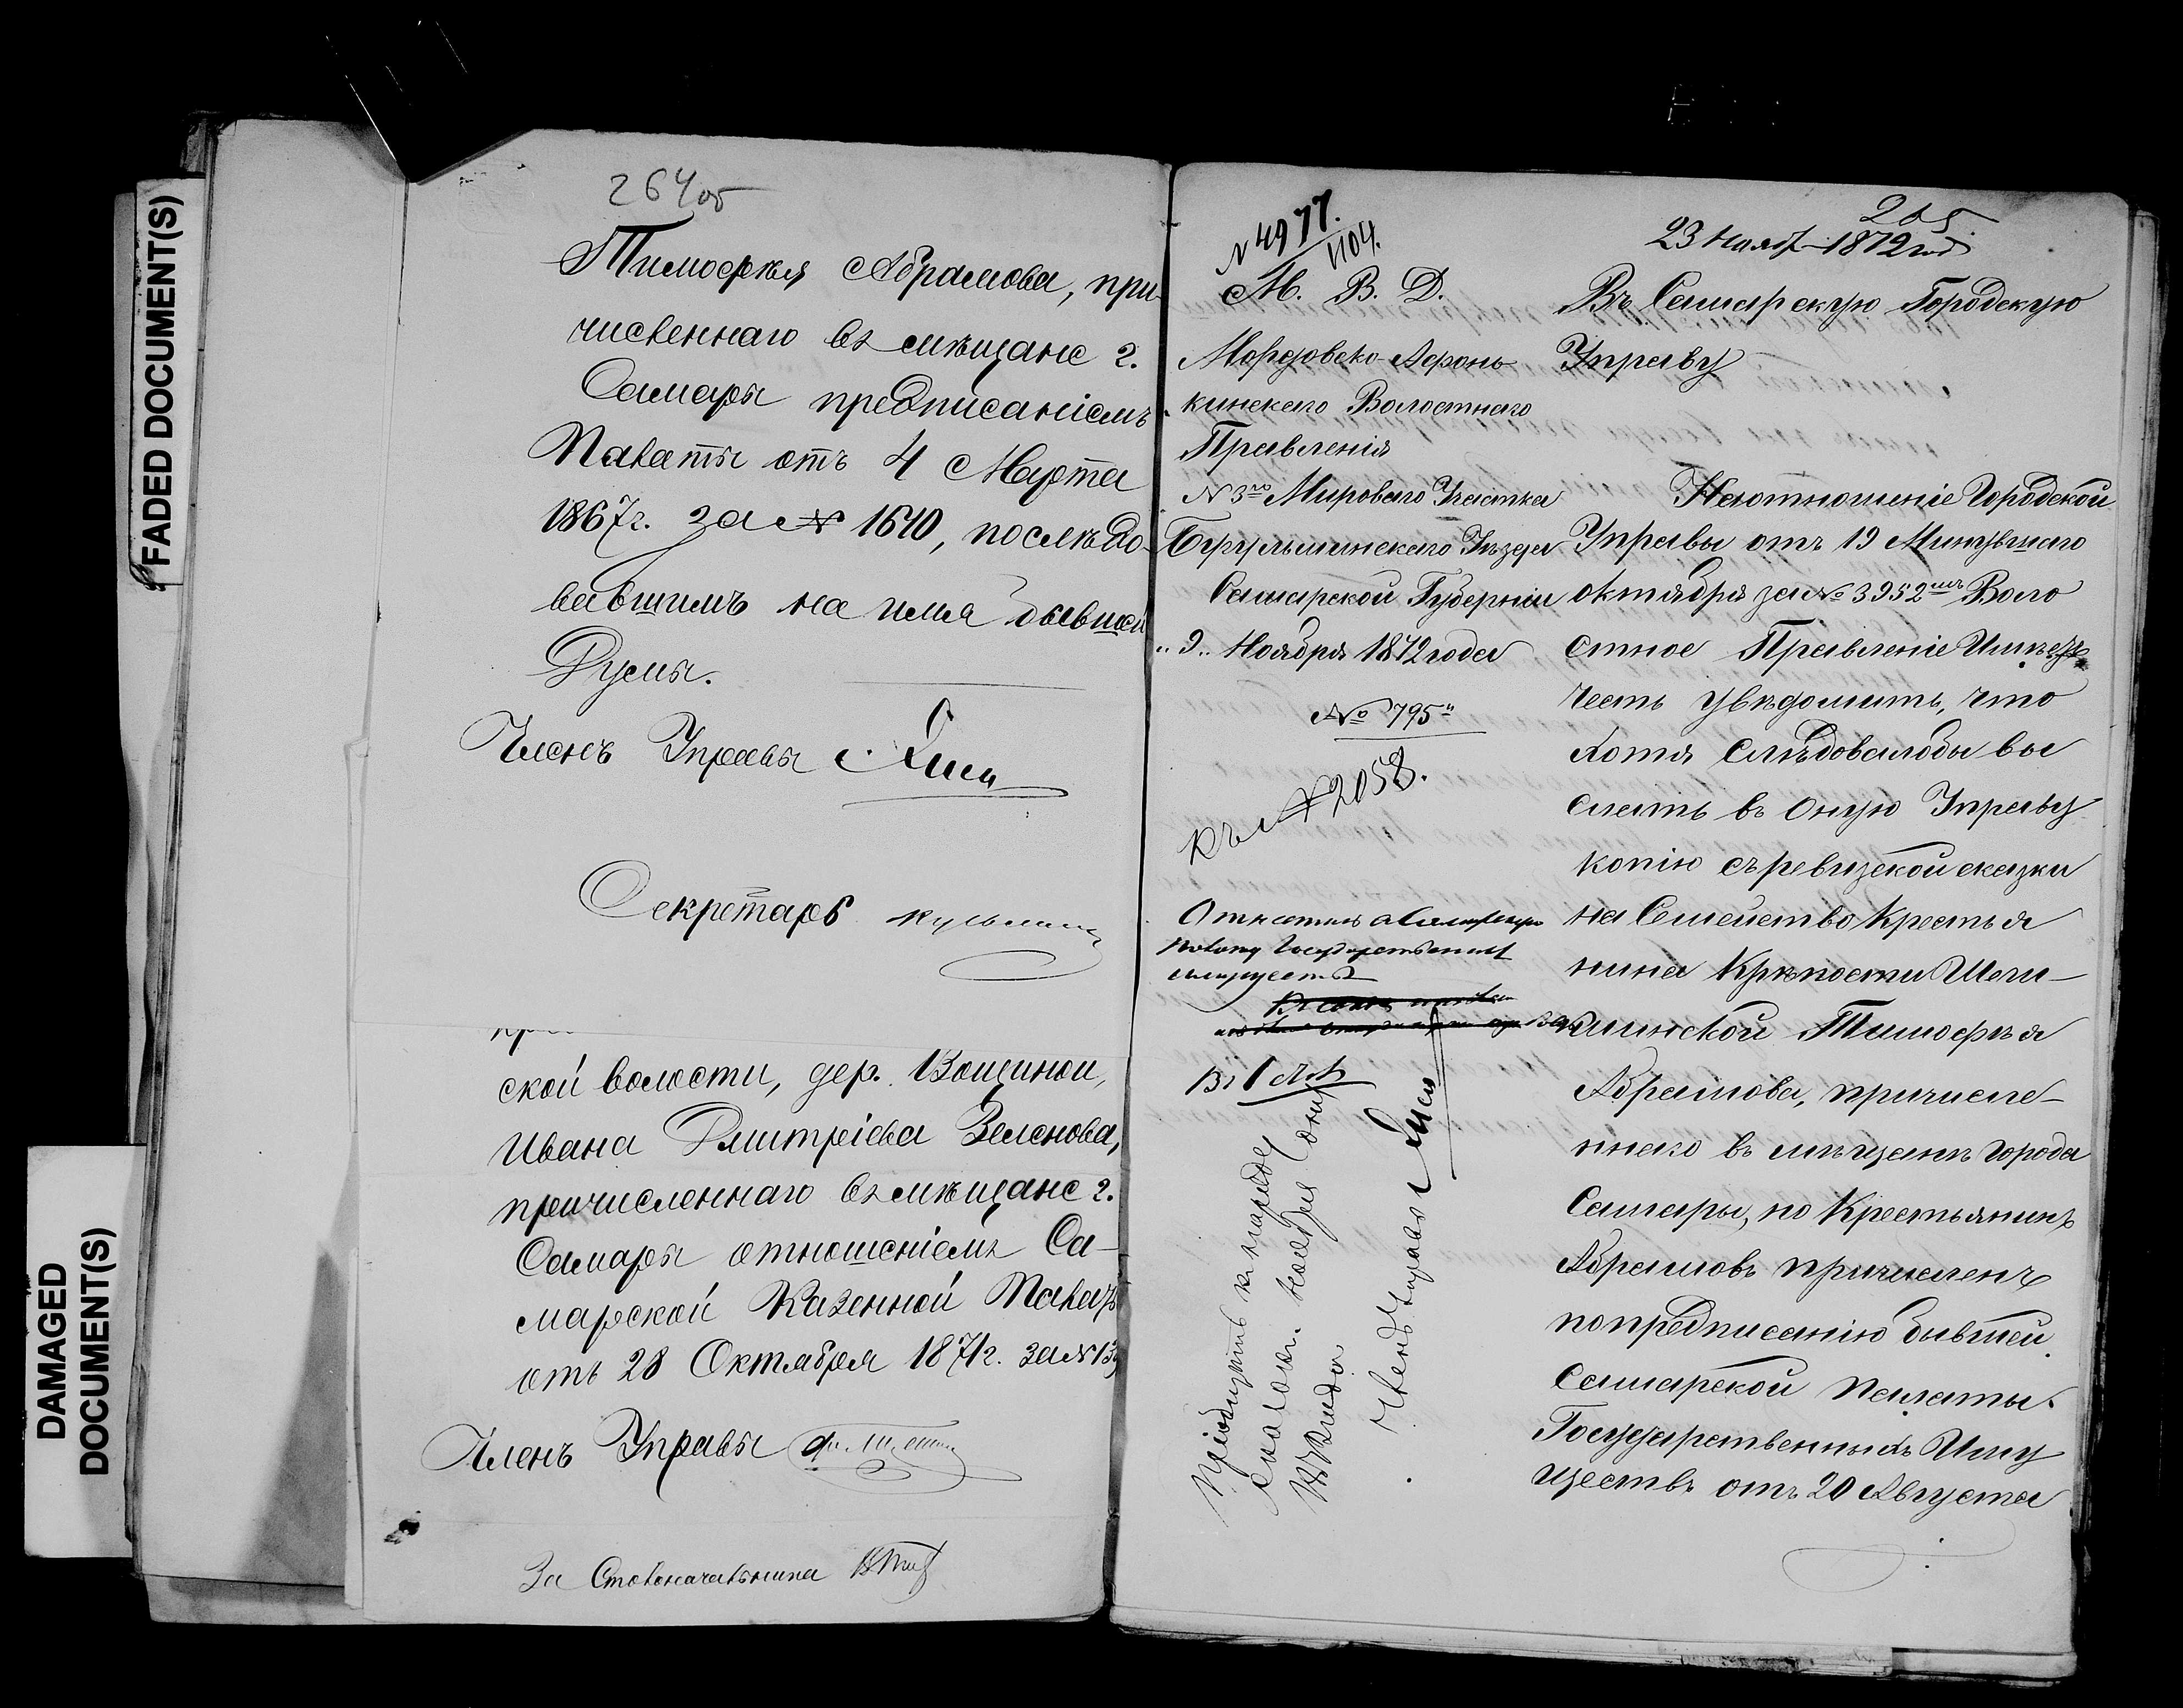 FADED DOCUMENT(S)
DAMAGED
DOCUMENT(S)
264об
Тимофѣя Абрамова, при-
численнаго въ мѣщане г.
Самары предписаніемъ
Палаты отъ 4 Марта
1867г. за № 1640, послѣдо-
вавшимъ на имя бывшей
Думы.
Членъ Управы
Секретарь
ской волости, дер. Вощиной,
Ивана Дмитріева Зеленова,
причисленнаго въ мѣщане г.
Самары отношеніемъ Са-
марской Казенной Палаты
отъ 28 Октября 1871г. за №
Членъ Управы
За Столоначальника
№ 4977.
1104.
М. В. Д.
Мордовско-Афонь-
кинскаго Волостнаго
Правленія
№ 3го Мироваго Участка
Бугульминскаго Уѣзда
Самарской Губерніи
„9„ Ноября 1872 года
№ 795"
къ № 2058.
Пріобщить къ наряду
Членъ Управы
265
23 Нояб 1872 год
Въ Самарскую Городскую
Управу
На отношеніе Городской
Управы отъ 19 Минувшаго
октября за № 3952мъ Воло
стное Правленіе Имѣетъ
честь увѣдомить, что
хотя слѣдовалобы вы
слать въ оную Управу
копію съ ревизской сказки
на Семейство Крестья
нина Крѣпости Шеш-
минской Тимофѣя
Абрамова, причисле-
ннаго въ мѣщанѣ города
Самары, но Крестьянинъ
Абрамовъ причисленъ
по предписанію бывшей
Самарской палаты
Государственныхъ Иму
ществъ отъ 20 Августа